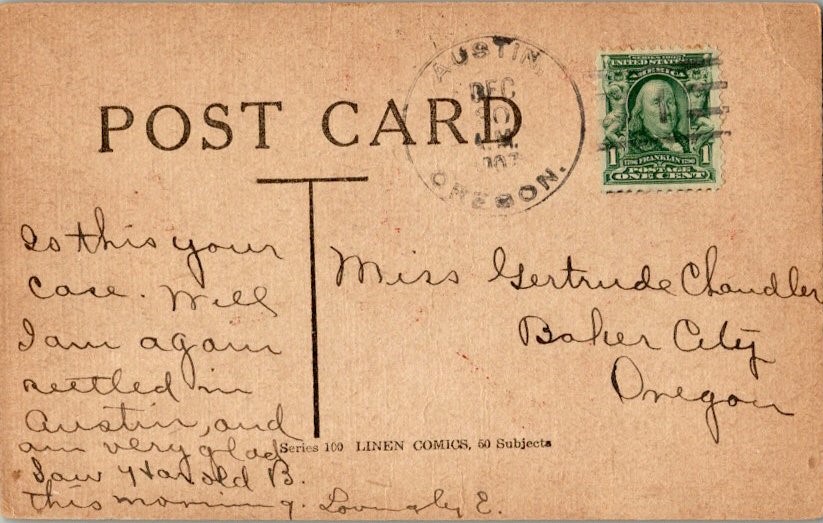 POST CARD
AUSTIN,
DEC
OREGON.
SERIES 1902
UNITED STATES
AMERICA
1 1790 FRANKLIN 1790 1
POSTAGE
ONE CENT
Is this your
case. Well
I am again
settled in
Austin, and
am very glad
Saw Harold B.
this morning. Lovingly E.
Miss Gertrude Chandler
Baker City
Oregon
Series 100 LINEN COMICS, 50 Subjects